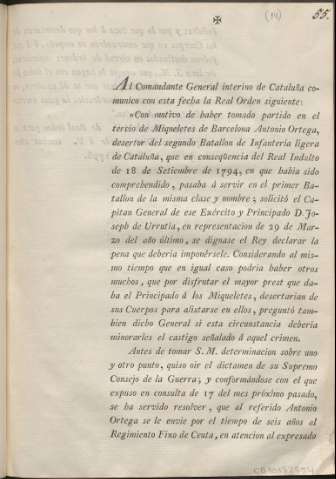 ✠ (14) 55.
Al Comandante General interino de Cataluña co-
munico con esta fecha la Real Orden siguiente:
«Con motivo de haber tomado partido en el
tercio de Miqueletes de Barcelona Antonio Ortega,
desertor del segundo Batallon de Infantería ligera
de Cataluña, que en conseqüencia del Real Indulto
de 18 de Setiembre de 1794, en que habia sido
comprehendido, pasaba á servir en el primer Ba-
tallon de la misma clase y nombre, solicitó el Ca-
pitan General de ese Exército y Principado D. Jo-
seph de Urrutia, en representacion de 29 de Mar-
zo del año último, se dignase el Rey declarar la
pena que deberia imponérsele. Considerando al mis-
mo tiempo que en igual caso podria haber otros
muchos, que por disfrutar el mayor prest que da-
ba el Principado á los Miqueletes, desertarian de
sus Cuerpos para alistarse en ellos, preguntó tam-
bien dicho General si esta circunstancia deberia
minorarles el castigo señalado á aquel crímen.
Antes de tomar S. M. determinacion sobre uno
y otro punto, quiso oir el dictámen de su Supremo
Consejo de la Guerra; y conformándose con el que
expuso en consulta de 17 del mes próximo pasado,
se ha servido resolver, que al referido Antonio
Ortega se le envie por el tiempo de seis años al
Regimiento Fixo de Ceuta, en atencion al expresado